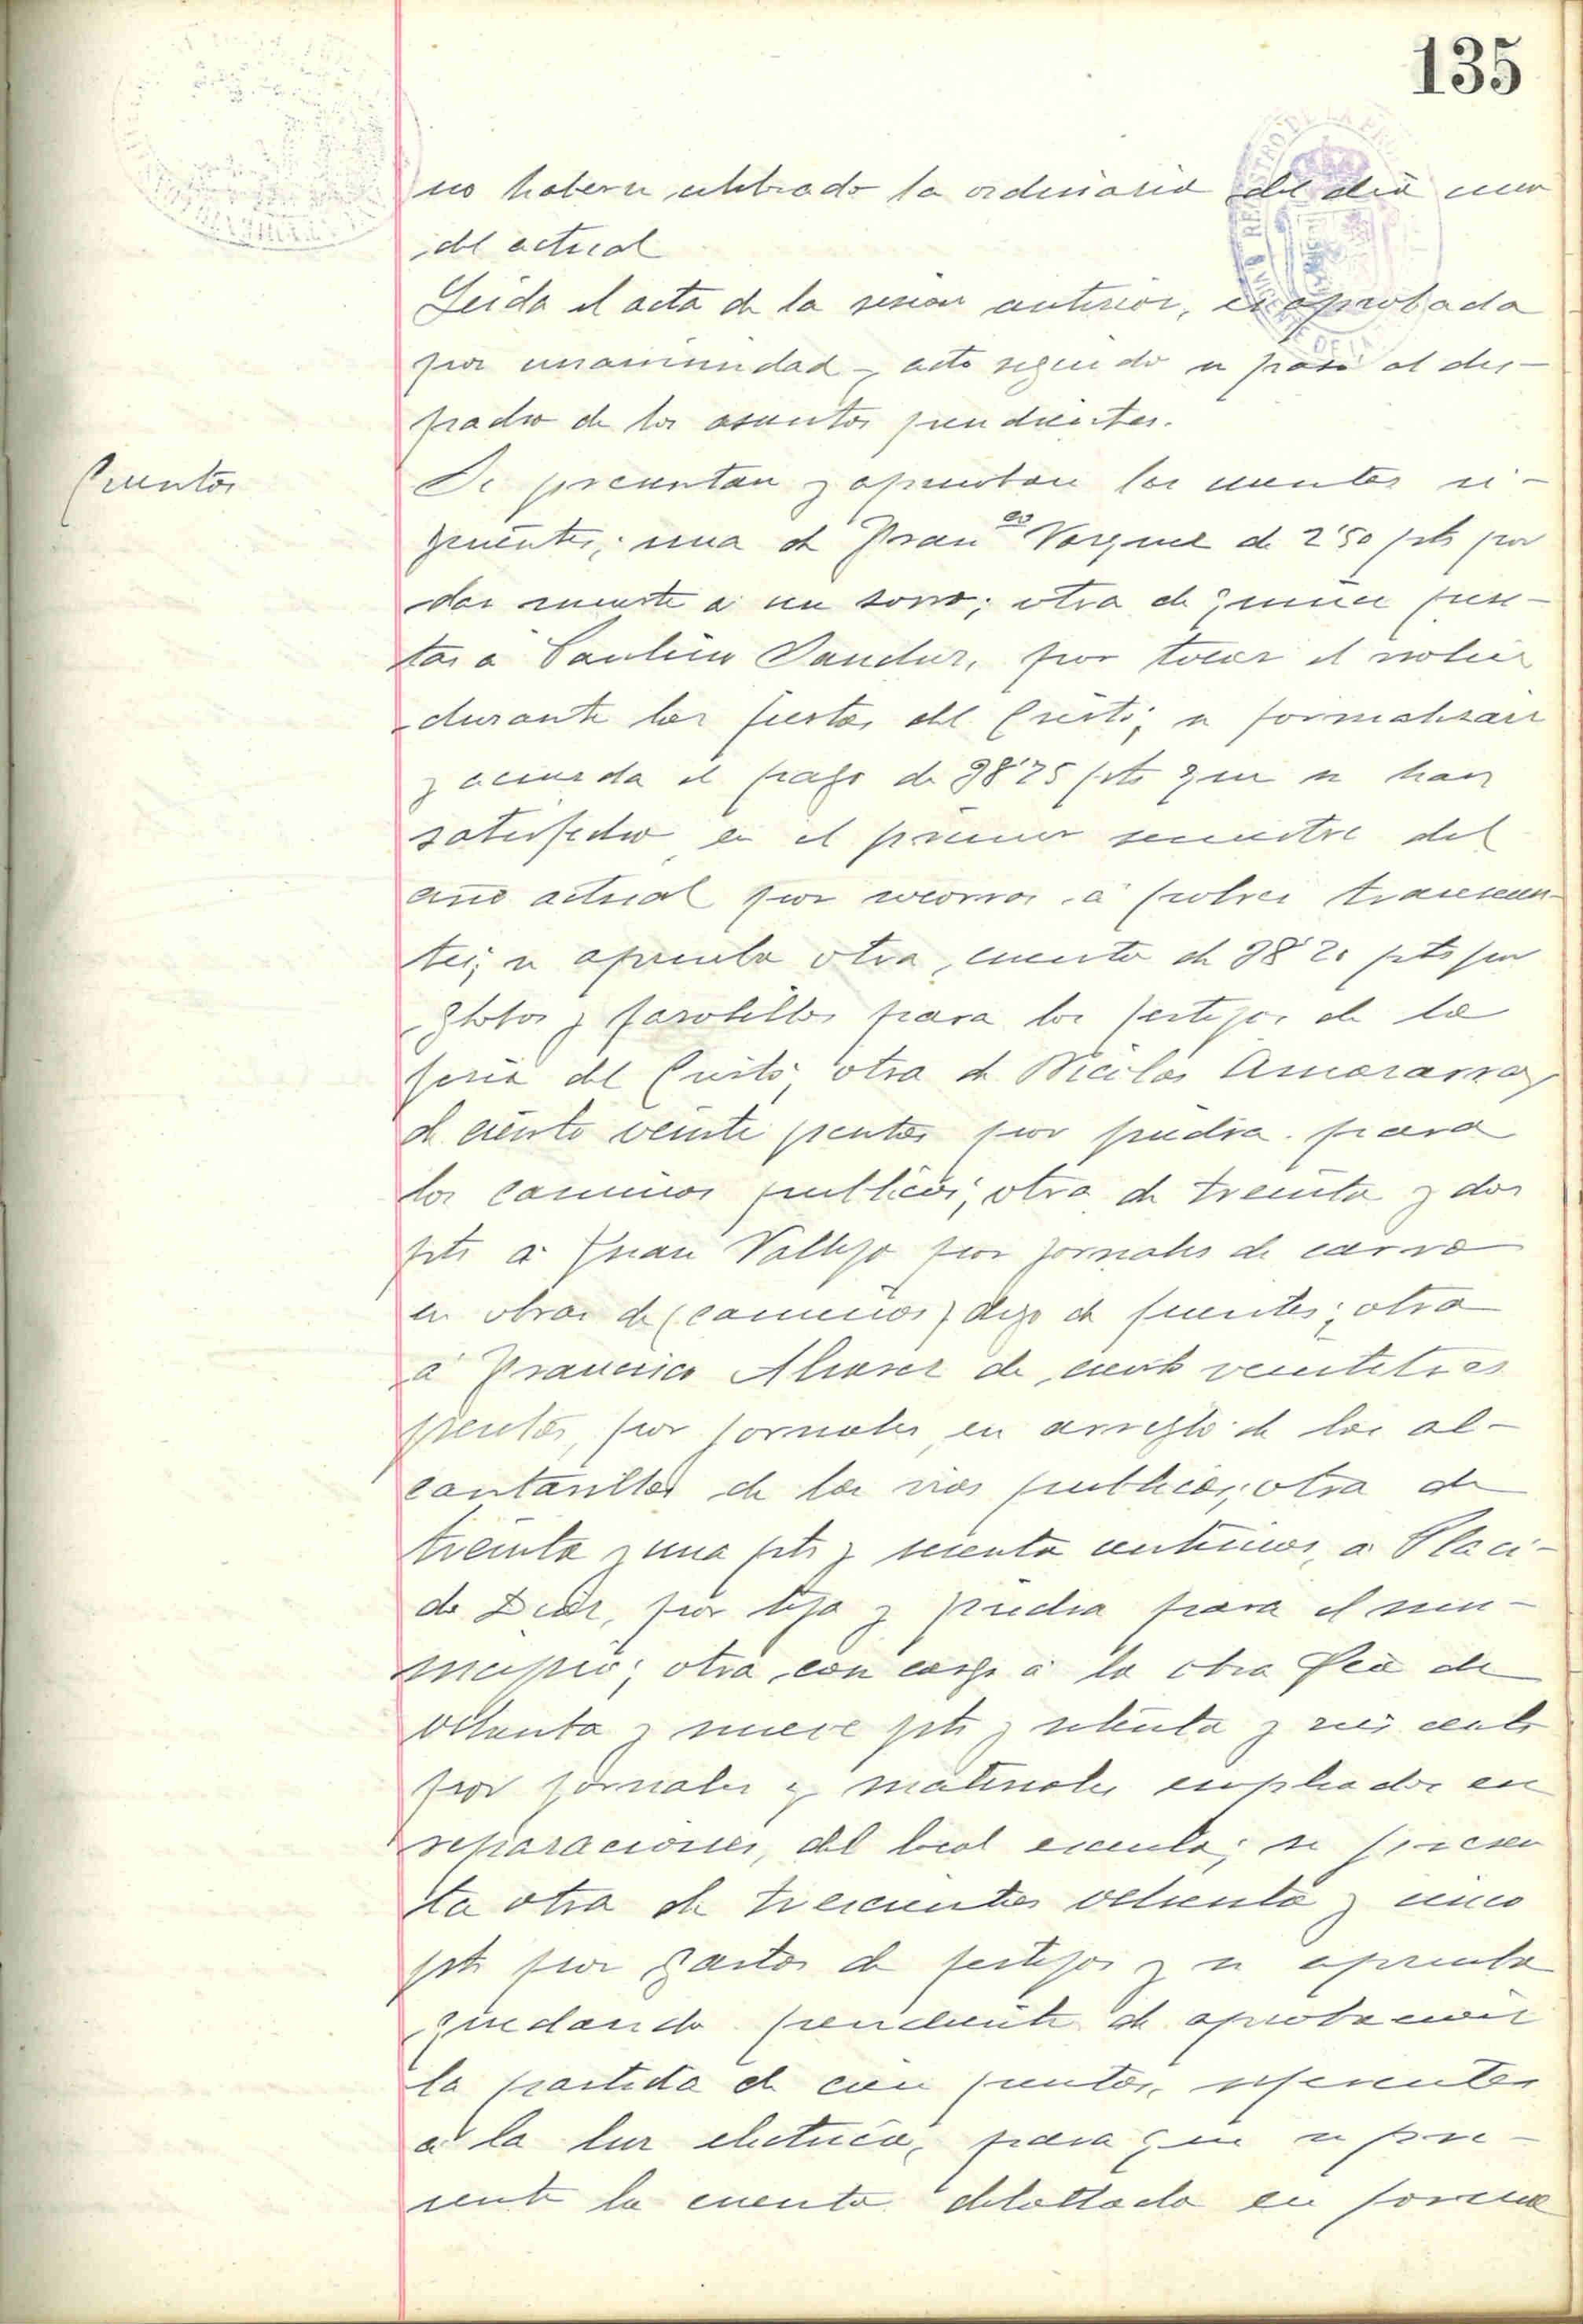 135
no haberse celebrado la ordinaria del dia uno
del actual
Leida el acta de la sesion anterior, es aprobada
por unanimidad y acto seguido se pasó al des-
pacho de los asuntos pendientes.
Cuentas
Se presentan y aprueban las cuentas si-
guientes; una de Fran^co Vazquez de 2'50 pts por
dar muerte a un zorro; otra de quince pese-
tas a Paulino Sanchez, por tocar el violin
durante las fiestas del Cristo; se formalizan
y acuerda el pago de 38'75 pts que se han
satisfecho en el primer semestre del
año actual por socorros á pobres transeun-
tes; se aprueba otra cuenta de 38'20 pts por
globos y farolillos para los festejos de la
feria del Cristo; otra de Nicolas
de ciento veinte pesetas por piedra para
los caminos publicos; otra de treinta y dos
pts a Juan Vallejo por jornales de carro
en obras de (caminos) digo de fuentes; otra
á Francisco Alvarez de ciento veintitres
pesetas, por jornales en arreglo de las al-
cantarillas de las vias publicas; otra de
treinta y una pts y sesenta centimos, a Placi-
do Diaz, por teja y piedra para el mu-
nicipio; otra con cargo á la obra Pia de
ochenta y nueve pts y setenta y seis cents
por jornales y materiales empleados en
reparaciones, del local escuela; se presen
ta otra de trescientas ochenta y cinco
pts por gastos de festejos y se aprueba
quedando pendiente de aprobacion
la partida de cien pesetas, referentes
a la luz electrica, para que se pre-
sente la cuenta detallada en forma